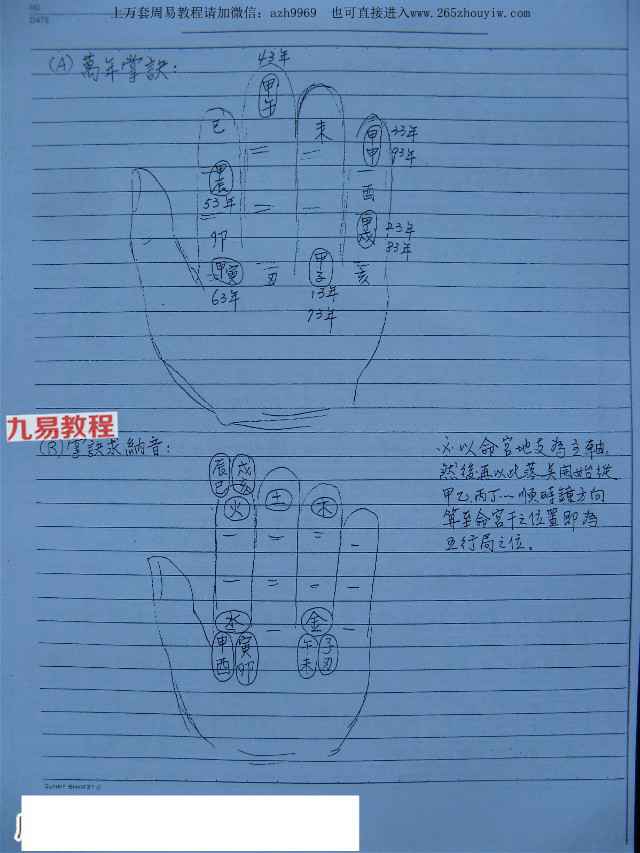 上万套周易教程请加微信：azh9969 也可直接进入www.265zhouyiw.com
NO.
DATE
(A) 萬年掌訣：
43年
甲午
巳
未
甲申
33年
93年
甲辰
53年
酉
甲戌
23年
83年
卯
甲寅
63年
丑
甲子
13年
73年
亥
九易教程
(B) 掌訣求納音：
※以命宮地支為主軸，
然後再以此落点開始供
甲乙、丙丁…順時鐘方向
算至命宮干之位置即為
五行局之位。
辰巳
戌亥
火
土
木
水
金
甲酉
寅卯
午未
子丑